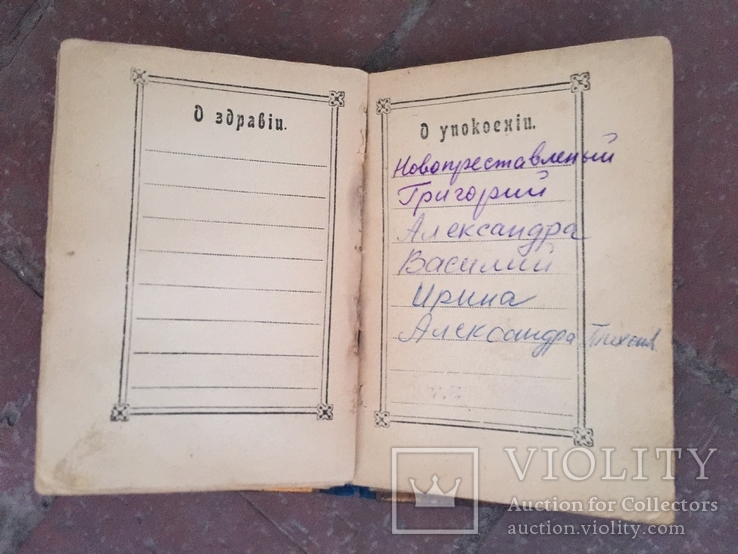 О здравіи.
О упокоеніи.
Новопреставленый
Григорий
Александра
Василий
Ирина
Александра
VIOLITY
Auction for Collectors
auction.violity.com